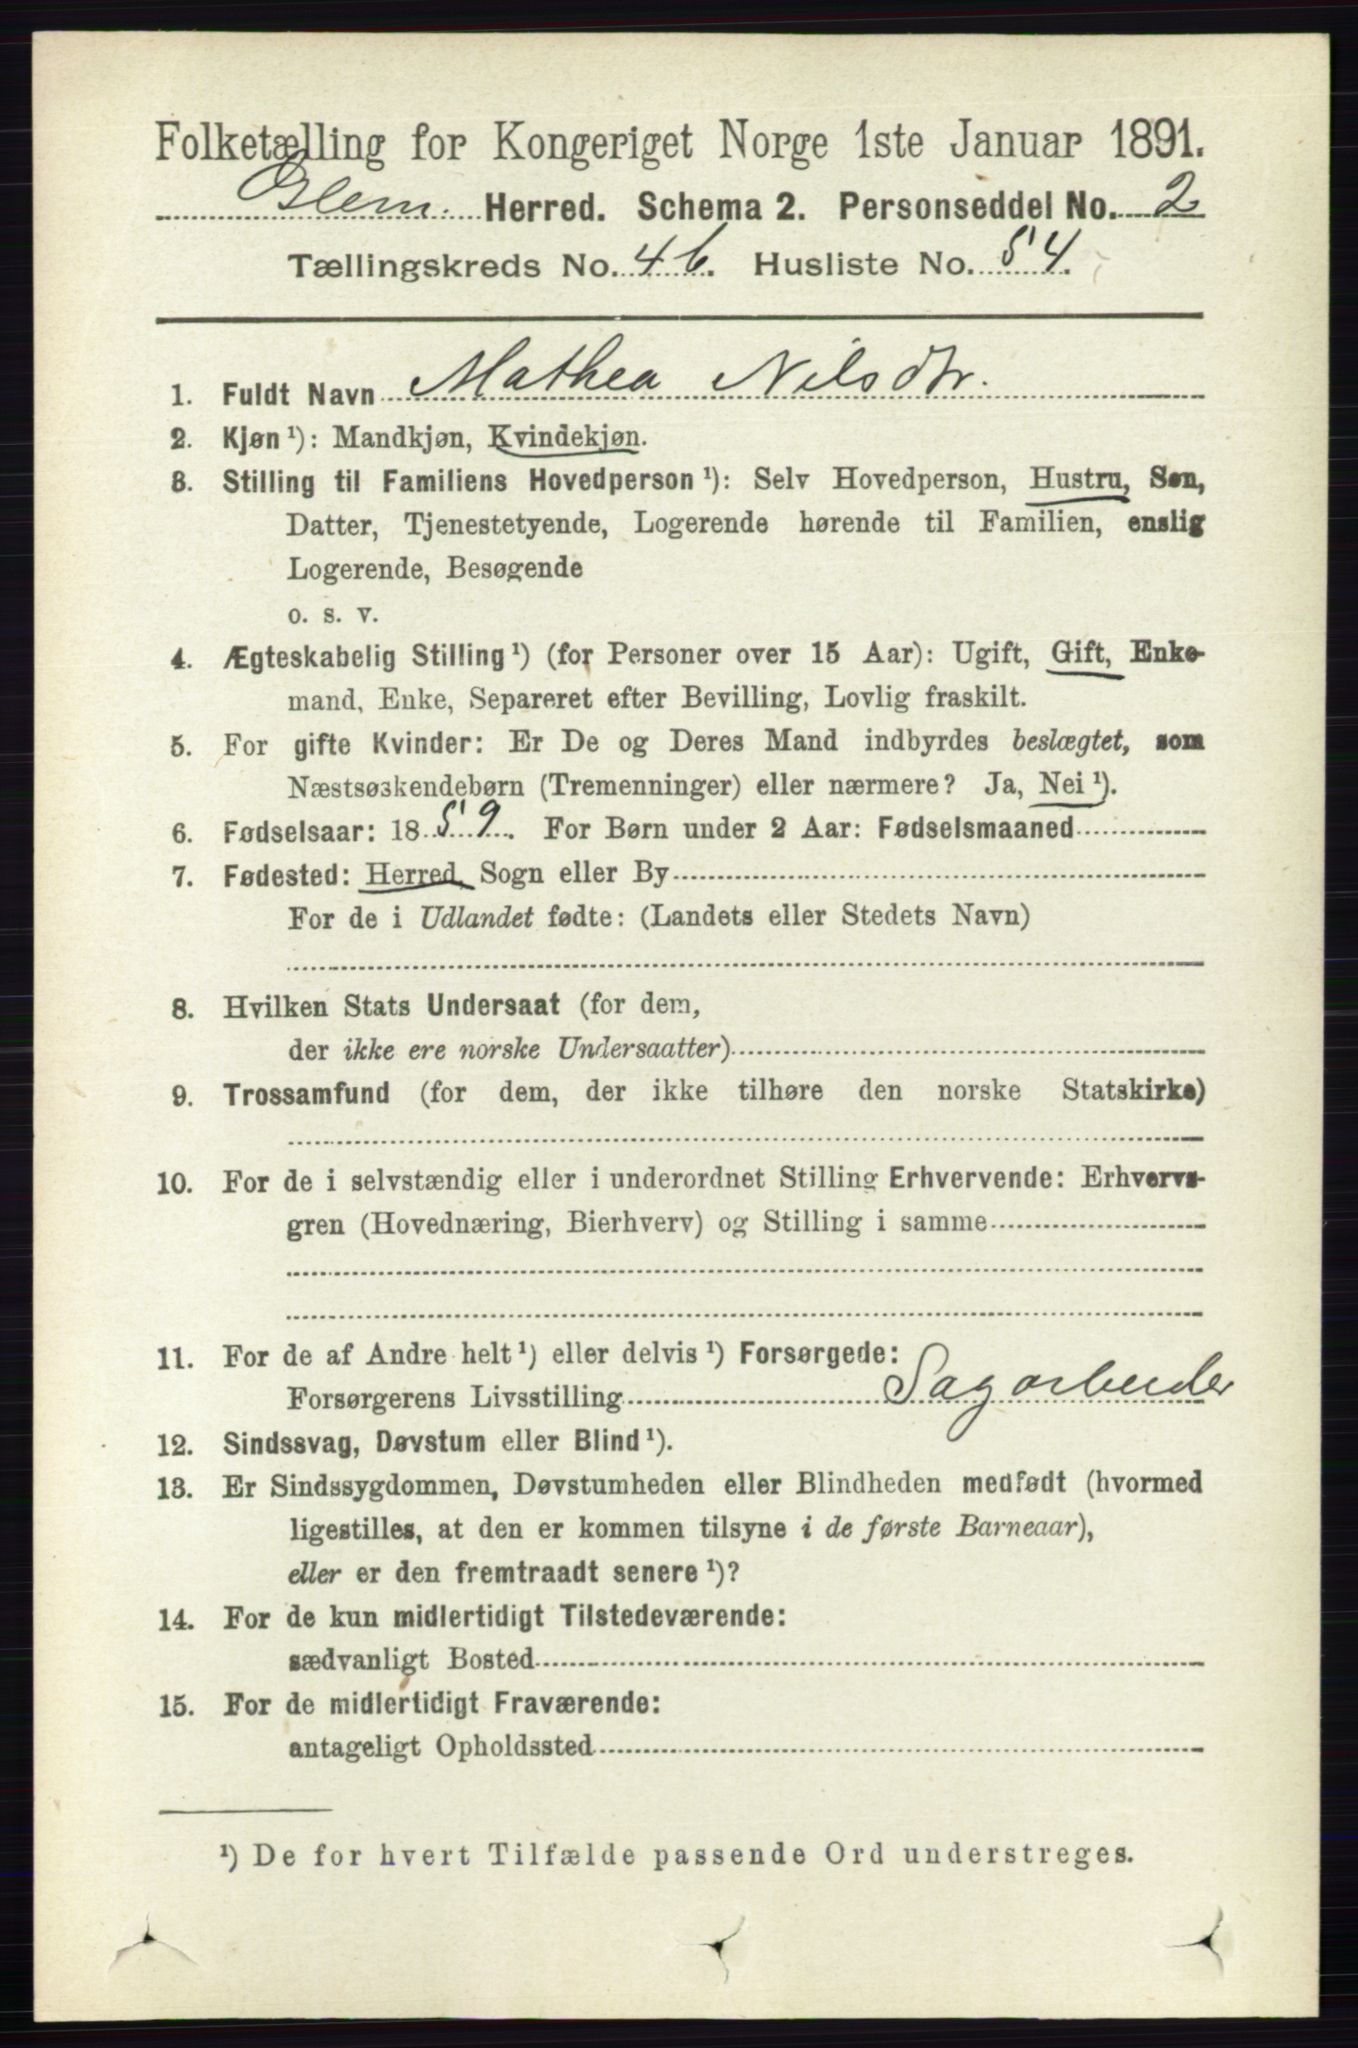 Folketælling for Kongeriget Norge 1ste Januar 1891.
Glem. Herred. Schema 2. Personseddel No. 2
Tællingskreds No. 4b. Husliste No. 54.
1. Fuldt Navn Mathea Nilsdtr.
2. Kjøn ¹): Mandkjøn, Kvindekjøn.
3. Stilling til Familiens Hovedperson ¹): Selv Hovedperson, Hustru, Søn,
Datter, Tjenestetyende, Logerende hørende til Familien, enslig
Logerende, Besøgende
o. s. v.
4. Ægteskabelig Stilling ¹) (for Personer over 15 Aar): Ugift, Gift, Enke-
mand, Enke, Separeret efter Bevilling, Lovlig fraskilt.
5. For gifte Kvinder: Er De og Deres Mand indbyrdes beslægtet, som
Næstsøskendebørn (Tremenninger) eller nærmere? Ja, Nei ¹).
6. Fødselsaar: 1859. For Børn under 2 Aar: Fødselsmaaned
7. Fødested: Herred, Sogn eller By
For de i Udlandet fødte: (Landets eller Stedets Navn)
8. Hvilken Stats Undersaat (for dem,
der ikke ere norske Undersaatter)
9. Trossamfund (for dem, der ikke tilhøre den norske Statskirke)
10. For de i selvstændig eller i underordnet Stilling Erhvervende: Erhvervs-
gren (Hovednæring, Bierhverv) og Stilling i samme
11. For de af Andre helt ¹) eller delvis ¹) Forsørgede:
Forsørgerens Livsstilling Sagarbeider
12. Sindssvag, Døvstum eller Blind ¹).
13. Er Sindssygdommen, Døvstumheden eller Blindheden medfødt (hvormed
ligestilles, at den er kommen tilsyne i de første Barneaar),
eller er den fremtraadt senere ¹)?
14. For de kun midlertidigt Tilstedeværende:
sædvanligt Bosted
15. For de midlertidigt Fraværende:
antageligt Opholdssted
¹) De for hvert Tilfælde passende Ord understreges.